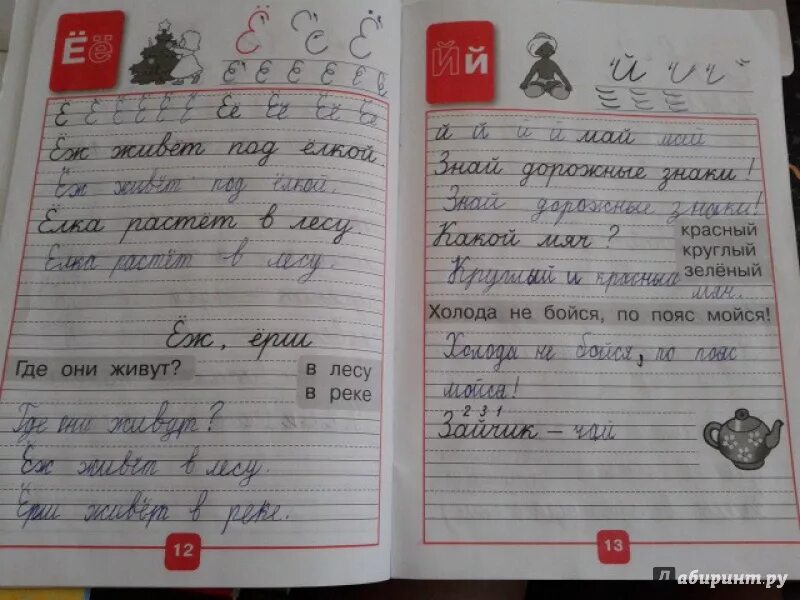 Ё ё
Ё Ё Ё
Ё Ё Ё Ё Ё
Ё Ё Ё Ё Ё Её Её Её Её
Ёж живёт под ёлкой.
Ёж живёт под ёлкой.
Ёлка растёт в лесу.
Ёлка растёт в лесу.
Ёж, ёрш
Где они живут?
в лесу
в реке
Где они живут?
Ёж живёт в лесу.
Ёрш живёт в реке.
12
Й й
й й й й май май
Знай дорожные знаки!
Знай дорожные знаки!
Какой мяч?
красный
круглый
зелёный
Круглый и красный
мяч.
Холода не бойся, по пояс мойся!
Холода не бойся, по пояс
мойся!
2 3 1
Зайчик – чай
13
Лабиринт.ру